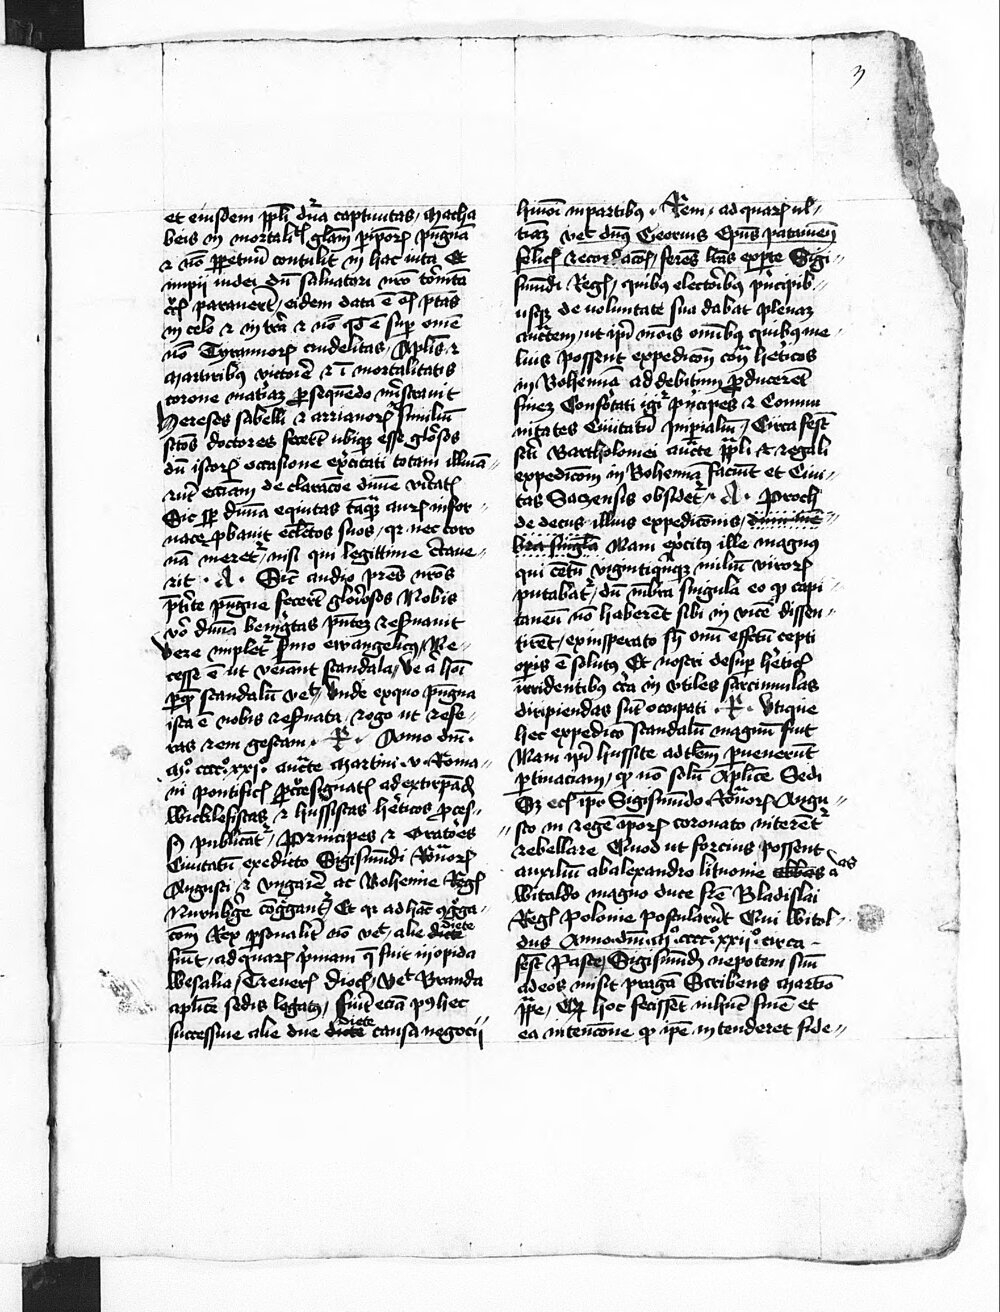 3
et eiusdem ppli dura captiuitas, Macha
beis in mortalem gliam
et non perpetuum contulit in hac uita Et
impii iudei dum saluatori nostro
crucem parauerunt, eidem data est omnis ptas
in celo et in terra et non quod est super omne
non Tyrannorum crudelitas, Aplis et
Martiribus et immortalitatis
corone materiam persequendo ministrauit
Hereses sabelli et arrianorum similium
doctores fecerunt ubique esse gloriosos
dum istorum occasione exercitati totam illumi=
narunt eciam de claracione diuine veritatis
Sic semper diuina equitas tamquam aurum in for=
nace probauit electos suos, quia nec coro
nam meretur nisi qui legittime certaue=
rit · A · Sicut audio patres nostros
pugne fecerunt gloriosos Nobis
vero diuina benignitas presentem reseruauit
Vere impletur sermo ewangelicus, Ne=
cesse est ut veniant scandala, Ve a homini
per quem scandalum venit, Unde exquo pugna
ista est nobis reseruata, rogo ut refe=
ras rem gestam · R · Anno domini
M° cccc° xxi° aucte Martini v Roma=
ni pontificis ad extirpandum
Wicklefistas et hussistas hereticos proces=
sus publicantur, Principes et Oratores
Ciuitatum ex edicto Sigismundi Romanorum
Augusti et vngarie ac Bohemie Regis
Nurnberge congregantur Et quia ad hanc congrega=
cionem Rex personaliter non venit, alie diete
fuerunt, ad quarum primam que fuit in opida
Wesalia, Treuerensis diocesis, venit Branda
aplice sedis legatus, fuerunt eciam post hec
successiue alie due diete causa negocii
huiusmodi in partibus · Rem, ad quarum ul=
timam venit dominus Georius Epus patauiensis
felicis recordacionis, ferens literas ex parte Sigi=
smundi Regis, quibus electoribus principibus
usque de voluntate sua dabat plenam
auctoritatem, ut ipsi modis omnibus quibus me=
lius possent expedicionem contra hereticos
in Bohemia ad debitum producerent
finem Confortati igitur principes et Commu
nitates Ciuitatum Imperialium, Circa festum
sancti Bartholomei aucte et regali
expedicionem in Bohemiam faciunt et Ciui=
tas Sacensis obsidetur · A · Proch
de decus illius expedicionis,
Nam exercitus ille magnus
qui centum vigintiquinque milium virorum
putabatur, dum membra singula eo quod capi
taneum non haberent sibi in vicem dissen=
tirent, ex insperato sine omni effectu cepti
operis est solutus, Et nostri desuper hereticis
irridentibus circa in vtiles sarcinulas
diripiendas sunt occupati · R · Vtique
hec expedicio scandalum magnum fuit
Nam ipsi hussite ad talem peruenerunt
pertinaciam, quod non solum Aplice Sedi
sed eciam ipso Sigismundo Romanorum Augu=
sto in regem ipsorum coronato niterentur
rebellare Quod ut forcius possent
auxilium ab alexandro lituanie alias a
Witoldo magno duce fratre Bladislai
Regis Polonie postularunt Qui Witol=
dus Anno domini M° cccc° xxii° circa
festum Pasce, Sigismundum nepotem suum
ad eos misit pragam Scribens Martino
pape, quod hoc fecisset in hunc finem et
ea intencione quod ipse intenderet fide=